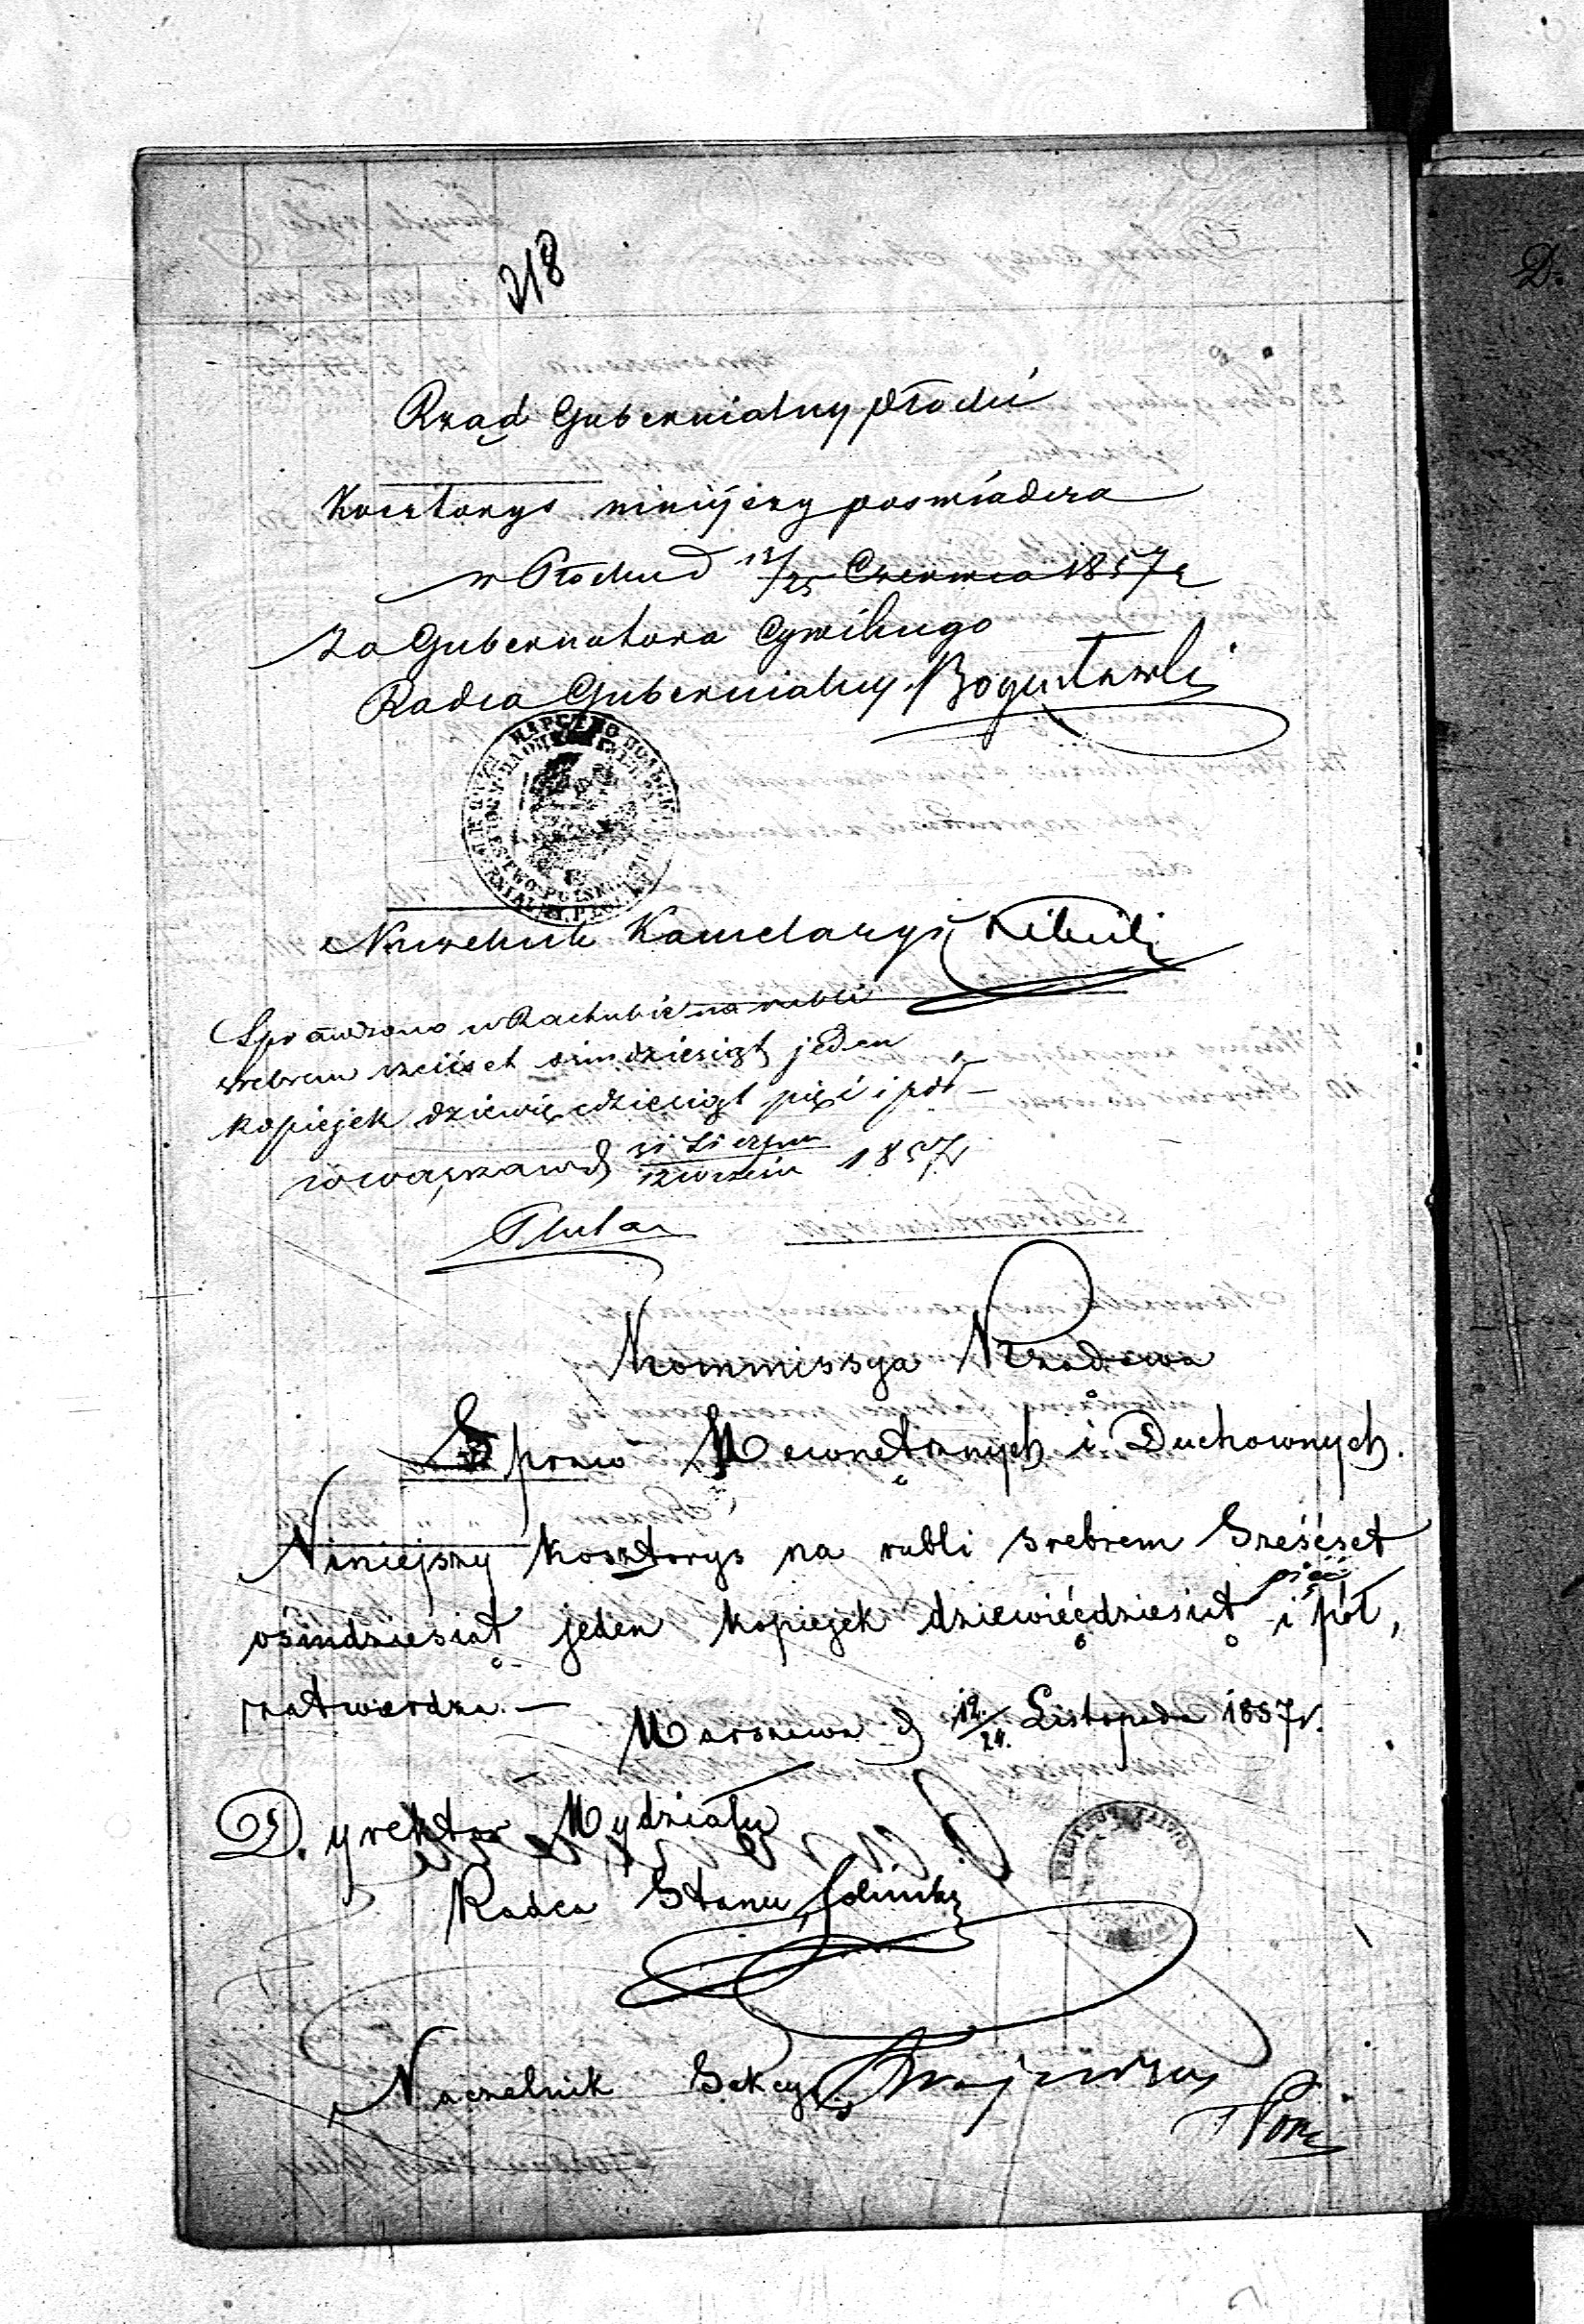 218
Rząd Gubernialny Płocki
Kosztorys niniejszy poświadcza
w Płocku d 13/25 Czerwca 1857 r
za Gubernatora Cywilnego
Radca Gubernialny Bogusławski
Naczelnik Kancelaryi
Sprawdzono w Rachubie na rubli
srebrem sześćset ośmdziesiąt jeden
kopiejek dziewięćdziesiąt pięć i pół —
w Warszawie d 31 Sierpn / 12 Wrześn 1857
Kommissya Rządowa
Spraw Wewnętrznych i Duchownych.
Niniejszy kosztorys na rubli srebrem Sześćset
ośmdziesiąt jeden kopiejek dziewięćdziesiąt pięć i pół,
zatwierdza. —
Warszawa d 12/24. Listopada 1857 r.
D. yrektor Wydziału
Radca Stanu
Naczelnik Sekcyi